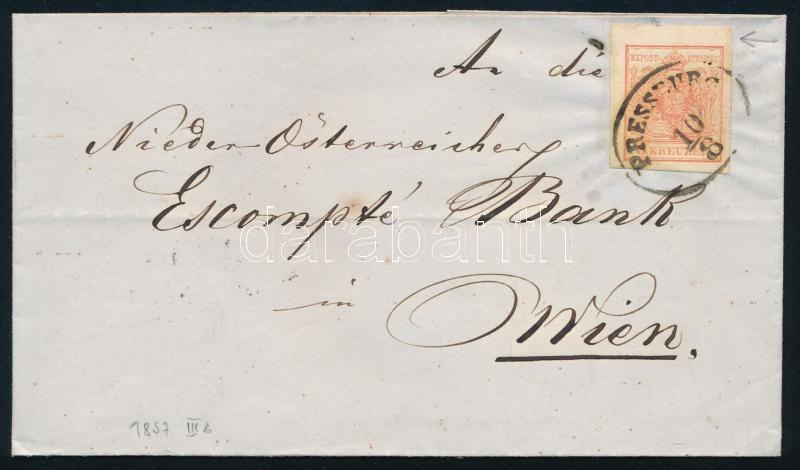 An die
KKPOST-STEMPEL
PRESSBURG
10/8
KREUZER
Nieder Österreicherg
Escompté Bank
darabanth
in
Wien.
1857 III